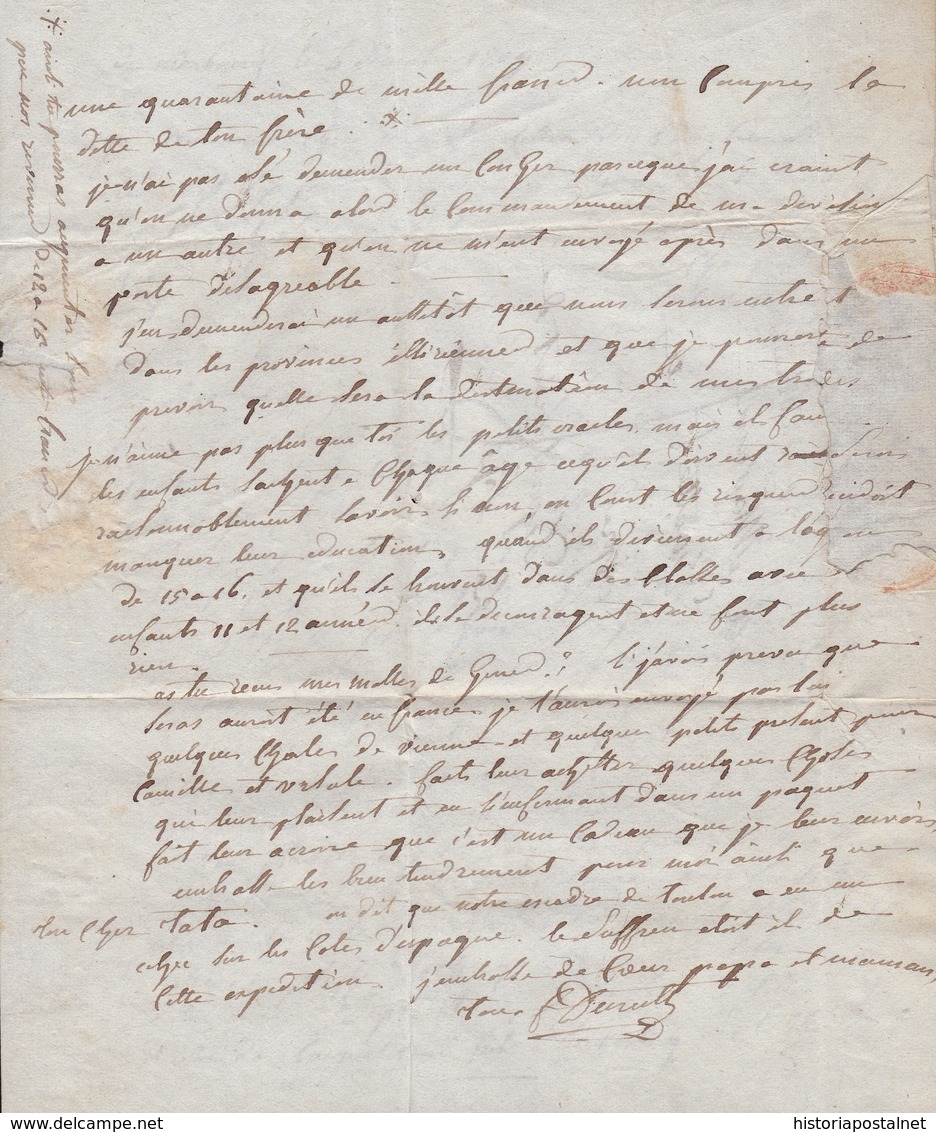 une quarantaine de mille francs. non compris la
dette de ton frère. x.
je n'ai pas osé demender un conger parceque j'ai craint
qu'on ne donna abord le commandement de ma division
a un autre et qu'on ne m'ent envoyé après dans un
poste désagréable.
j'en demenderai un aussitôt que nous serons entré
dans les provinces illiriennes et que je pourrai
prevoir quelle sera la destination de mes troupes
je n'aime pas plus que toi les petits oracles, mais il faut
les enfants sachent a chaque âge cequ'ils doivent
raisonnablement savoir sinon, on court les risques
manquer leur education, quand ils deviennent a l'age
de 15 a 16. et qu'ils se trouvent dans des classes avec
enfants 11 et 12 années. ils se decouragent et ne font plus
rien.
as tu recus mes malles de ? si j'avois prevu que
seras auroit été en france je t'aurois envoyé par lui
quelques chales de vienne et quelques petits présent pour
Camille et . faits leur achetter quelques choses
qui leur plaisent et en l'enfermant dans un paquet
fait leur acroire que c'est un cadeau que je leur envois
embrasse les bien tendrement pour moi ainsi que
ton cher Tata. on dit que notre escadre de toulon a eu un
echec sur les cotes d'espagne. le Suffren etoit il de
cette expedition j'embrasse de coeur papa et maman,
ton
x. ainsi tu pourras acquitter
par nos revenus de 12 a 15 mille francs
historiapostalnet
historiapostalnet
delcampe.net